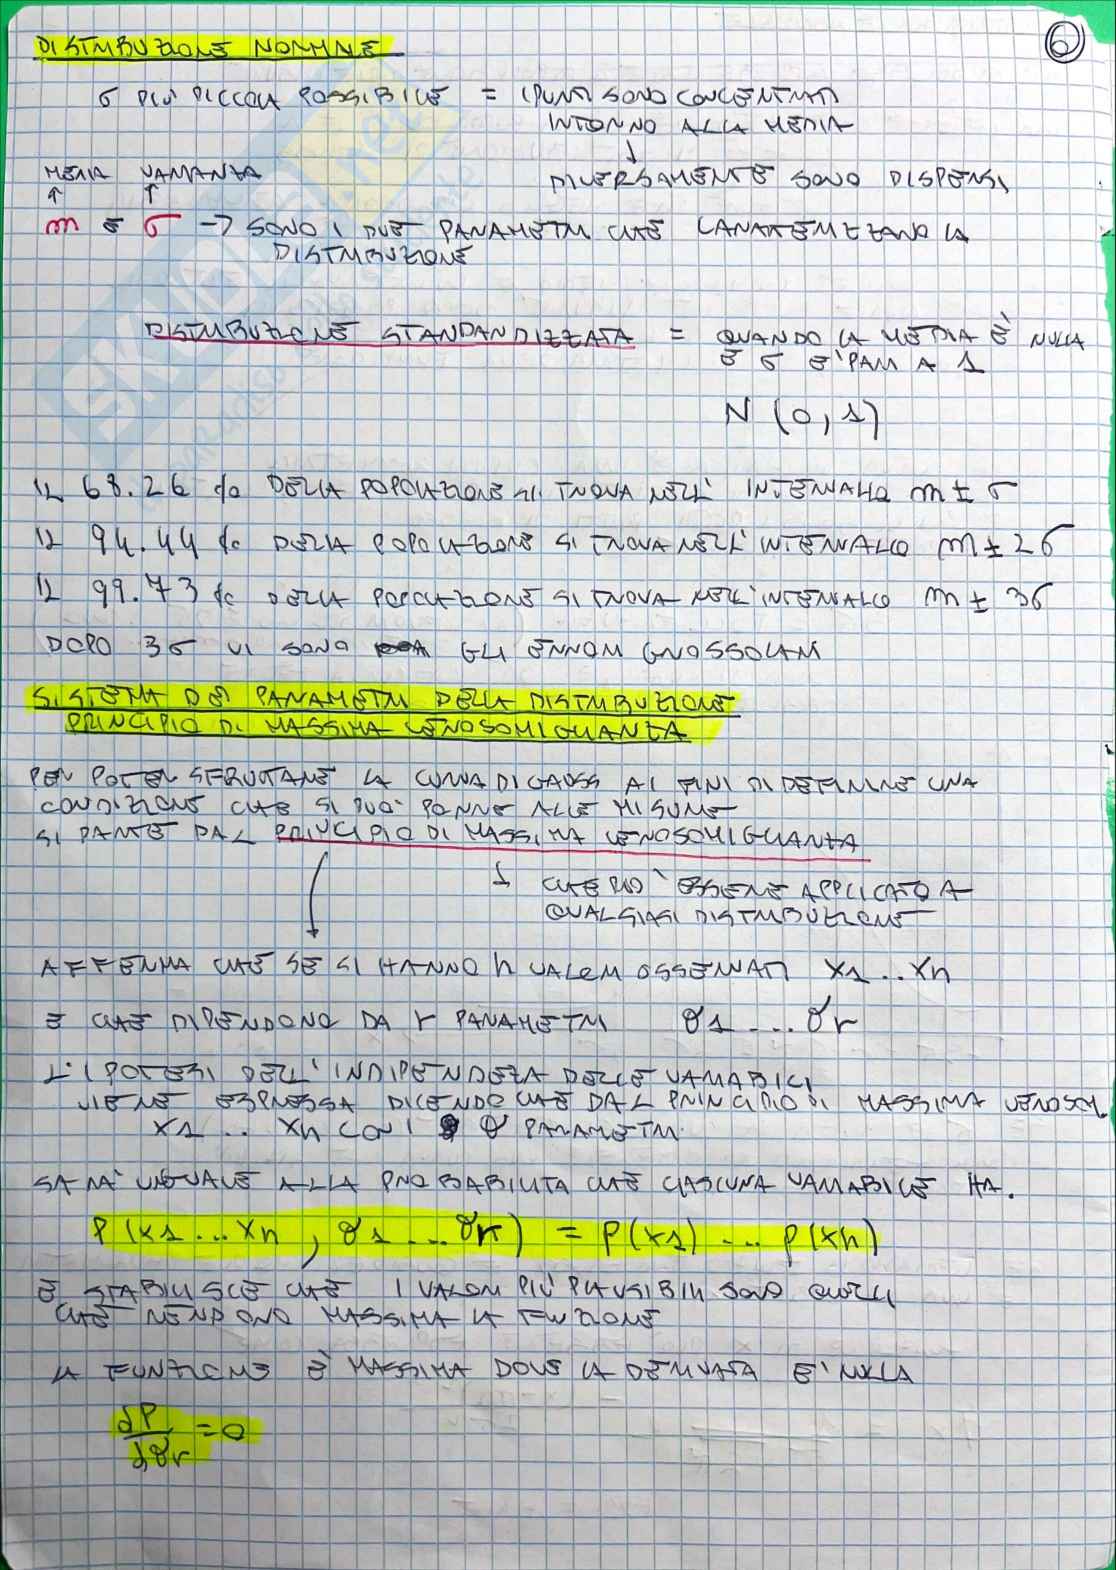 6
DISTRIBUZIONE NORMALE
σ PIÙ PICCOLA POSSIBILE = I PUNTI SONO CONCENTRATI
INTORNO ALLA MEDIA
↓
MEDIA VARIANZA
DIVERSAMENTE SONO DISPERSI
↑ ↑
m E σ → SONO I DUE PARAMETRI CHE CARATTERIZZANO LA
DISTRIBUZIONE
DISTRIBUZIONE STANDARDIZZATA = QUANDO LA MEDIA È NULLA
E σ E' PARI A 1
N (0,1)
IL 68.26 % DELLA POPOLAZIONE SI TROVA NELL' INTERVALLO m ± σ
IL 94.44 % DELLA POPOLAZIONE SI TROVA NELL' INTERVALLO m ± 2σ
IL 99.73 % DELLA POPOLAZIONE SI TROVA NELL'INTERVALLO m ± 3σ
DOPO 3σ VI SONO GLI ERRORI GROSSOLANI
SISTEMA DEI PARAMETRI DELLA DISTRIBUZIONE
PRINCIPIO DI MASSIMA VEROSOMIGLIANZA
PER POTER SFRUTTARE LA CURVA DI GAUSS AI FINI DI DEFINIRE UNA
CONDIZIONE CHE SI PUO' PORRE ALLE MISURE
SI PARTE DAL PRINCIPIO DI MASSIMA VEROSOMIGLIANZA
↓ CHE PUO' ESSERE APPLICATO A
QUALSIASI DISTRIBUZIONE
AFFERMA CHE SE SI HANNO n VALORI OSSERVATI x1 .. xn
E CHE DIPENDONO DA r PARAMETRI ϑ1 .... ϑr
L'IPOTESI DELL'INDIPENDEZA DELLE VARIABILI
VIENE ESPRESSA DICENDO CHE DAL PRINCIPIO DI MASSIMA VEROSOM.
x1 .. xn CON I ϑ PARAMETRI
SARA' UGUALE ALLA PROBABILITA CHE CIASCUNA VARIABILE HA.
P (x1 ... xn , ϑ1 ... ϑr) = P(x1) ... P(xn)
E STABILISCE CHE I VALORI PIÙ PLAUSIBILI SONO QUELLI
CHE RENDONO MASSIMA LA FUNZIONE
LA FUNZIONE È MASSIMA DOVE LA DERIVATA E' NULLA
dP/dϑr = 0
SKUOLA.net